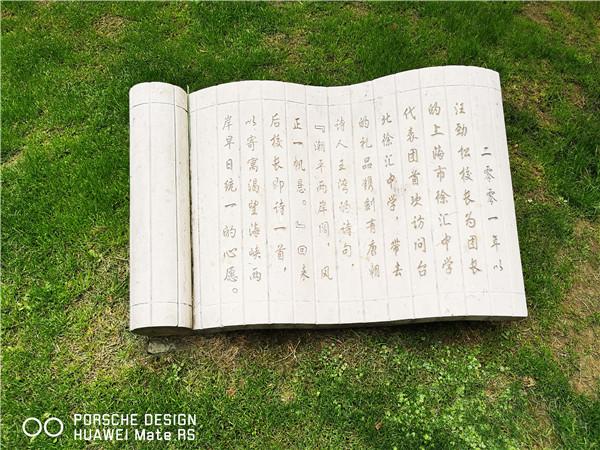 二零零一年以
汪劲松校长为团长
的上海市徐汇中学
代表团首次访问台
北徐汇中学，带去
的礼品镌刻有唐朝
诗人王湾的诗句，
『潮平两岸阔，风
正一帆悬。』回来
后校长即诗一首，
以寄寓渴望海峡两
岸早日统一的心愿。
PORSCHE DESIGN
HUAWEI Mate RS